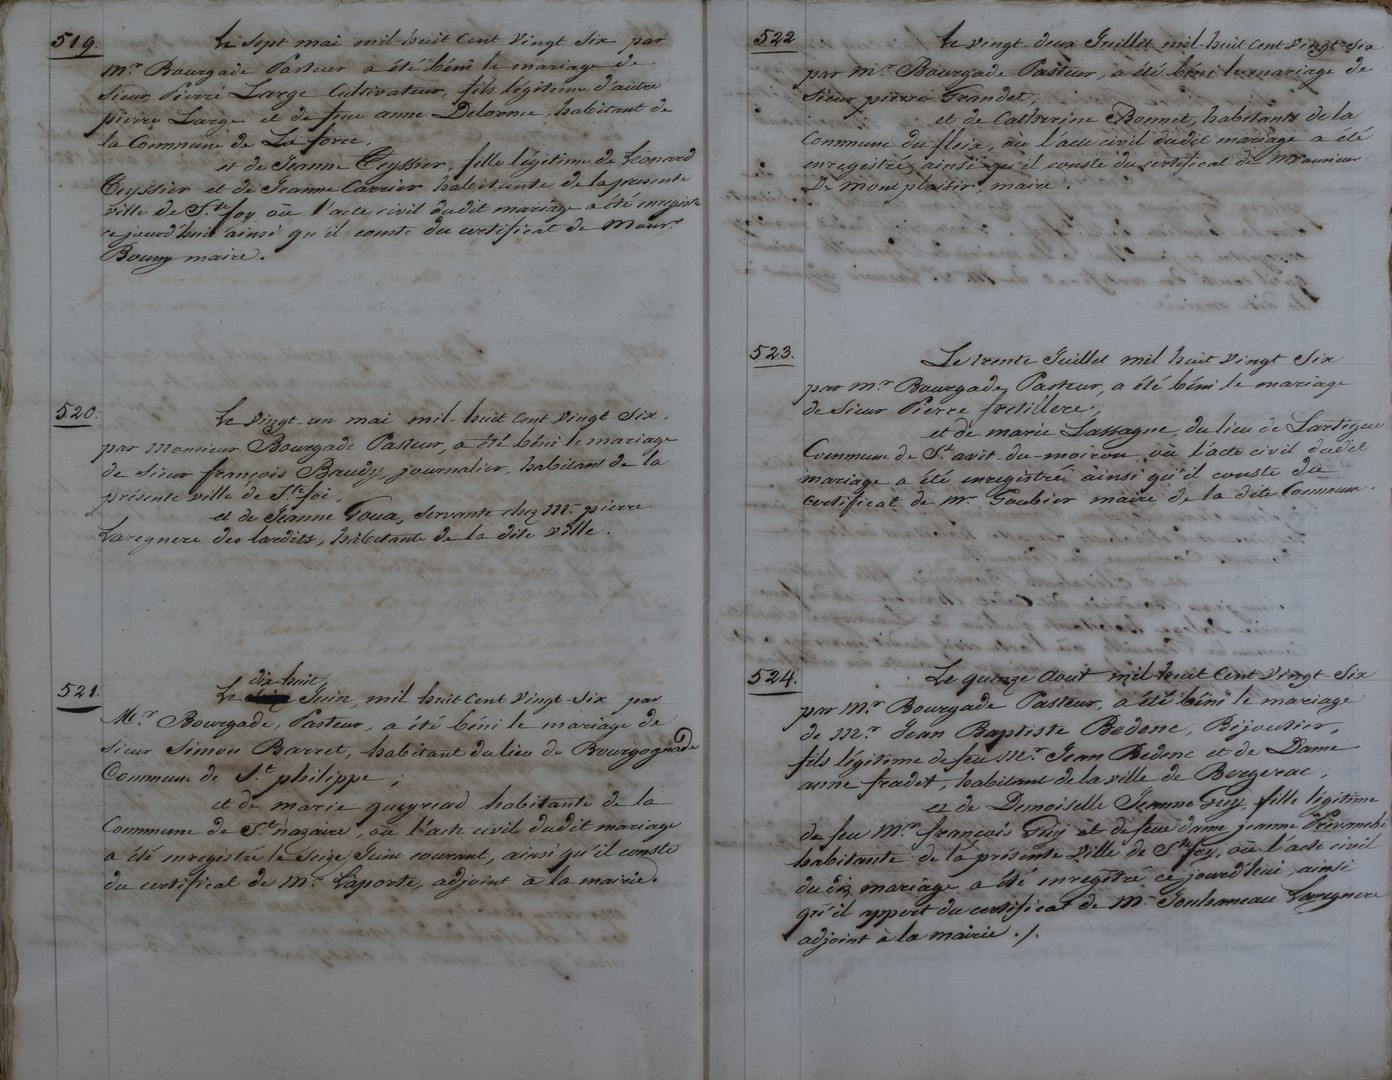 519.
Le Sept mai mil huit Cent vingt Six par
Mr Bourgade Pasteur a été béni le mariage de
Sieur Pierre Large Cultivateur, fils légitime d'autre
pierre Large et de feue anne Delorme, habitant de
la Commune de La force,
et de Jeanne Teyssier, fille légitime de Léonard
Teyssier et de Jeanne Carrier habitante de la présente
ville de Ste foy où l'acte civil dudit mariage a été enregistré
ce jourd'hui ainsi qu'il conste du certificat de Monr
maire.
520.
Le vingt-un mai mil-huit cent vingt Six,
par Monsieur Bourgade Pasteur, a été béni le mariage
de Sieur françois Baudy, journalier, habitant de la
présente ville de Ste foi,
et de Jeanne Goua, Servante chez Mr pierre
Laregnere des lardits, habitante de la dite ville.
521.
dix-huit
Le Juin, mil huit Cent vingt-Six par
Mr Bourgade, Pasteur, a été béni le mariage de
Sieur Simon Barret, habitant du lieu de Bourgognade
Commune de St philippe,
et de marie queyread habitante de la
Commune de St nazaire, où l'acte civil dudit mariage
a été enregistré le Seize Juin courant, ainsi qu'il conste
du certificat de Mr Laporte, adjoint à la mairie.
522
Le vingt deux Juillet mil-huit Cent vingt-Six
par Mr Bourgade Pasteur, a été béni le mariage de
Sieur pierre Grandet,
et de Catherine Bonnet, habitants de la
Commune du fleix, où l'acte civil dudit mariage a été
enregistré, ainsi qu'il conste du certificat de
De Mont plaisir, maire.
523.
Le trente Juillet mil huit vingt Six
par Mr Bourgade, Pasteur, a été béni le mariage
de Sieur Pierre fretillere,
et de marie Lassagne, du lieu de Lartigue
Commune de St avit-du-moiron où l'acte civil dudit
mariage a été enregistré ainsi qu'il conste du
certificat de mr Goubier maire de la dite Commune.
524.
Le quinze Août mil-huit Cent vingt-Six
par Mr Bourgade Pasteur, a été béni le mariage
de Mr Jean Baptiste Bedenc, Bijoutier,
fils légitime de feu Mr Jean Bedenc et de Dame
anne fradet, habitant de la ville de Bergerac,
et de Demoiselle Jeanne Guy, fille légitime
de feu Mr françois Guy et de feue dame jeanne
habitante de la présente ville de Ste foy, où l'acte civil
dudit mariage a été enregistré ce jourd'hui, ainsi
qu'il appert du certificat de Mr Jouhaneau Laregnere
adjoint à la mairie ./.